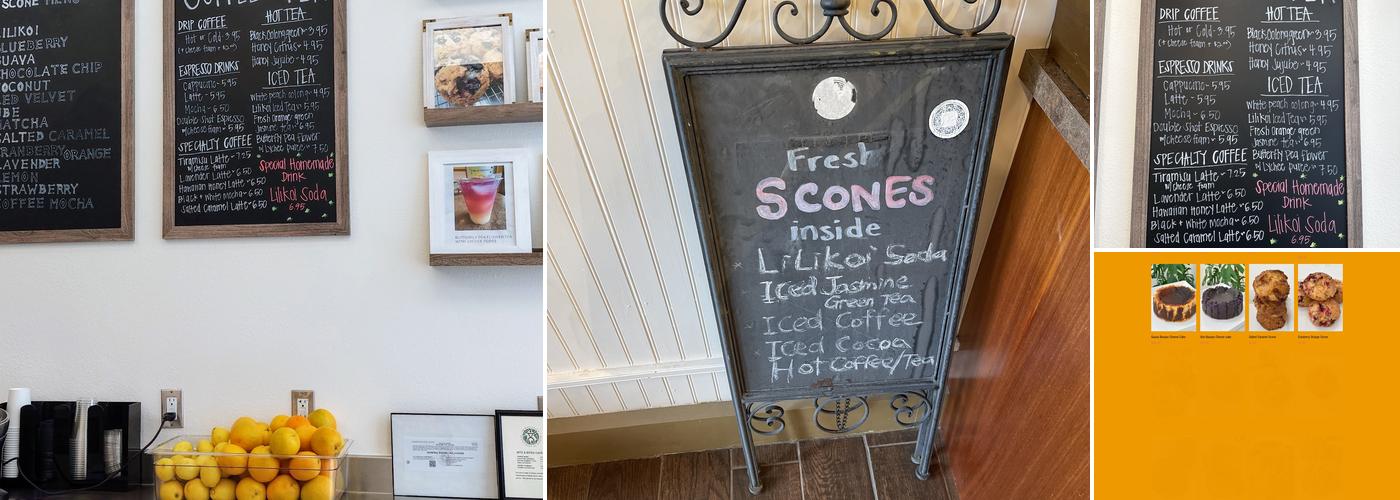 SCONE MENU
LILIKOI
BLUEBERRY
GUAVA
CHOCOLATE CHIP
COCONUT
RED VELVET
UBE
MATCHA
SALTED CARAMEL
CRANBERRY ORANGE
LAVENDER
LEMON
STRAWBERRY
COFFEE MOCHA
DRIP COFFEE
Hot or Cold - 3.95
ESPRESSO DRINKS
Cappucino - 5.95
Latte - 5.95
Mocha - 6.50
Double Shot Espresso
w/cheese foam - 5.95
SPECIALTY COFFEE
Tiramisu Latte - 7.25
w/cheese foam
Lavender Latte - 6.50
Hawaiian Honey Latte - 6.50
Black + White Mocha - 6.50
Salted Caramel Latte - 6.50
HOT TEA
Black Oolong green - 3.95
Honey Citrus - 4.95
Honey Jujube - 4.95
ICED TEA
White peach oolong - 4.95
Lilikoi Iced Tea - 5.95
Fresh Orange green
Jasmine Tea - 6.95
Butterfly Pea flower
Special Homemade
Drink
Lilikoi Soda
6.95
Fresh
SCONES
inside
LiLikoi Soda
Iced Jasmine
Green Tea
Iced Coffee
Iced Cocoa
Hot Coffee/Tea
DRIP COFFEE
Hot or Cold - 3.95
(+ cheese foam + $2.00)
ESPRESSO DRINKS
Cappucino - 5.95
Latte - 5.95
Mocha - 6.50
Double Shot Espresso
w/cheese foam - 5.95
SPECIALTY COFFEE
Tiramisu Latte - 7.25
w/cheese foam
Lavender Latte - 6.50
Hawaiian Honey Latte - 6.50
Black + White Mocha - 6.50
Salted Caramel Latte - 6.50
HOT TEA
Black Oolong green - 3.95
Honey Citrus - 4.95
Honey Jujube - 4.95
ICED TEA
White peach oolong - 4.95
Lilikoi Iced Tea - 5.95
Fresh Orange green
Jasmine Tea - 6.95
Butterfly Pea flower
w/Lychee puree - 7.50
Special Homemade
Drink
Lilikoi Soda
6.95